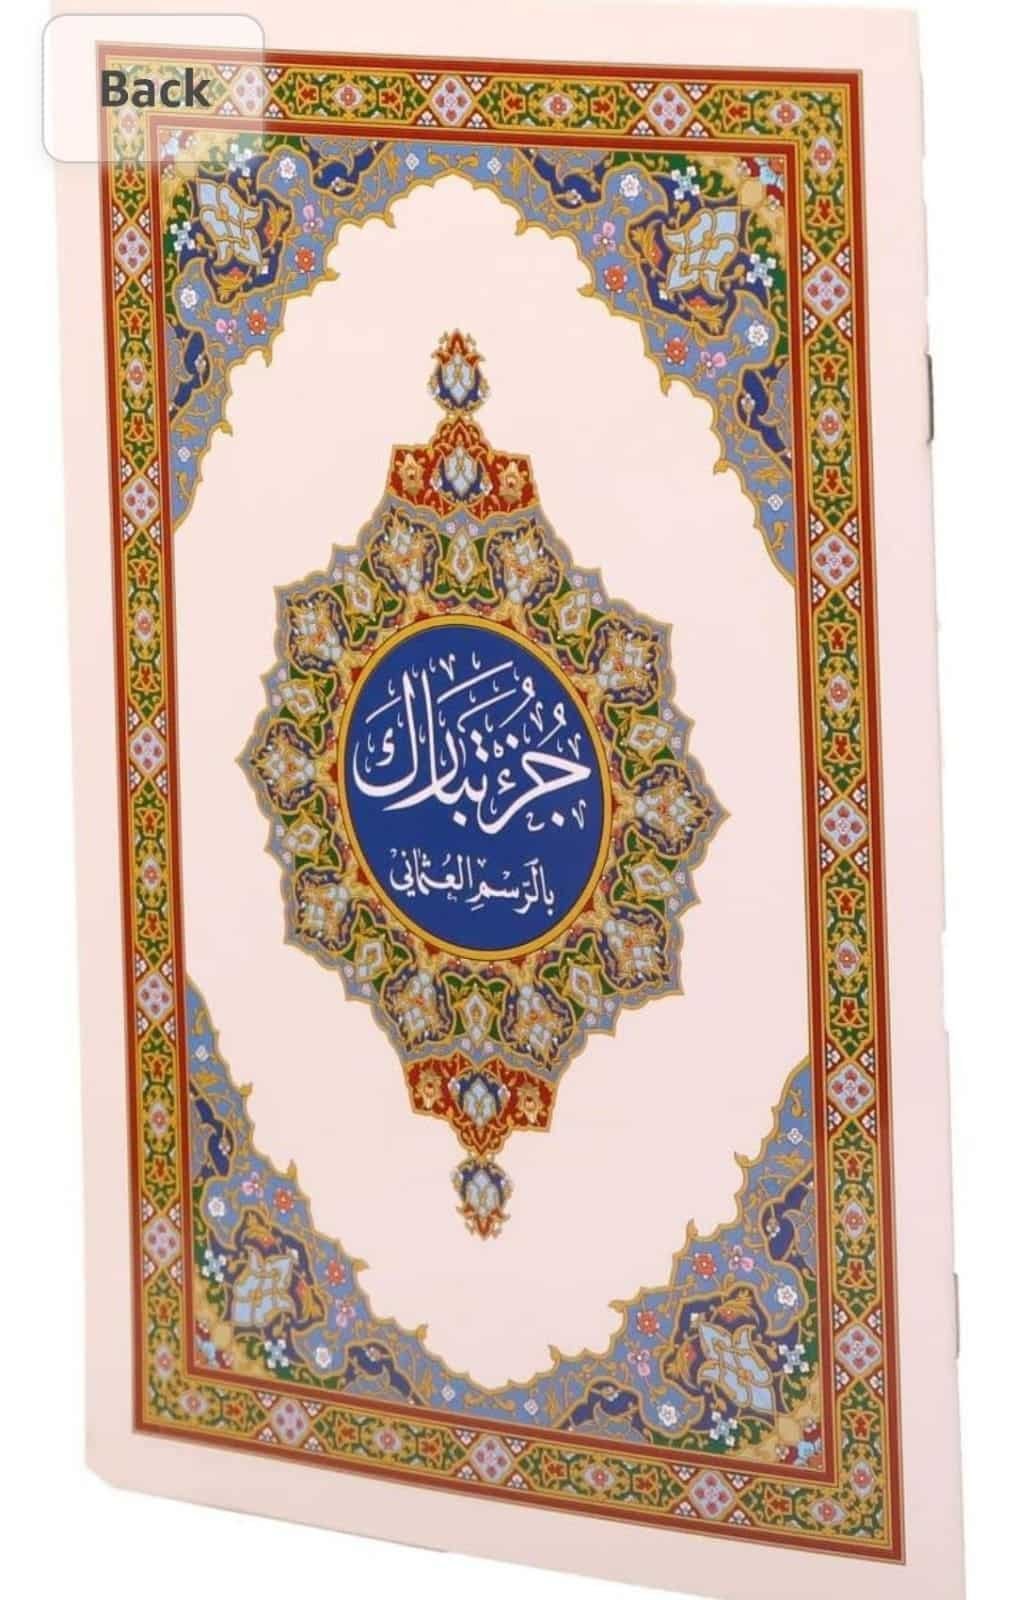 Back
جُزْءُ تَبَارَكَ
بِالرَّسْمِ العُثْمَانِي